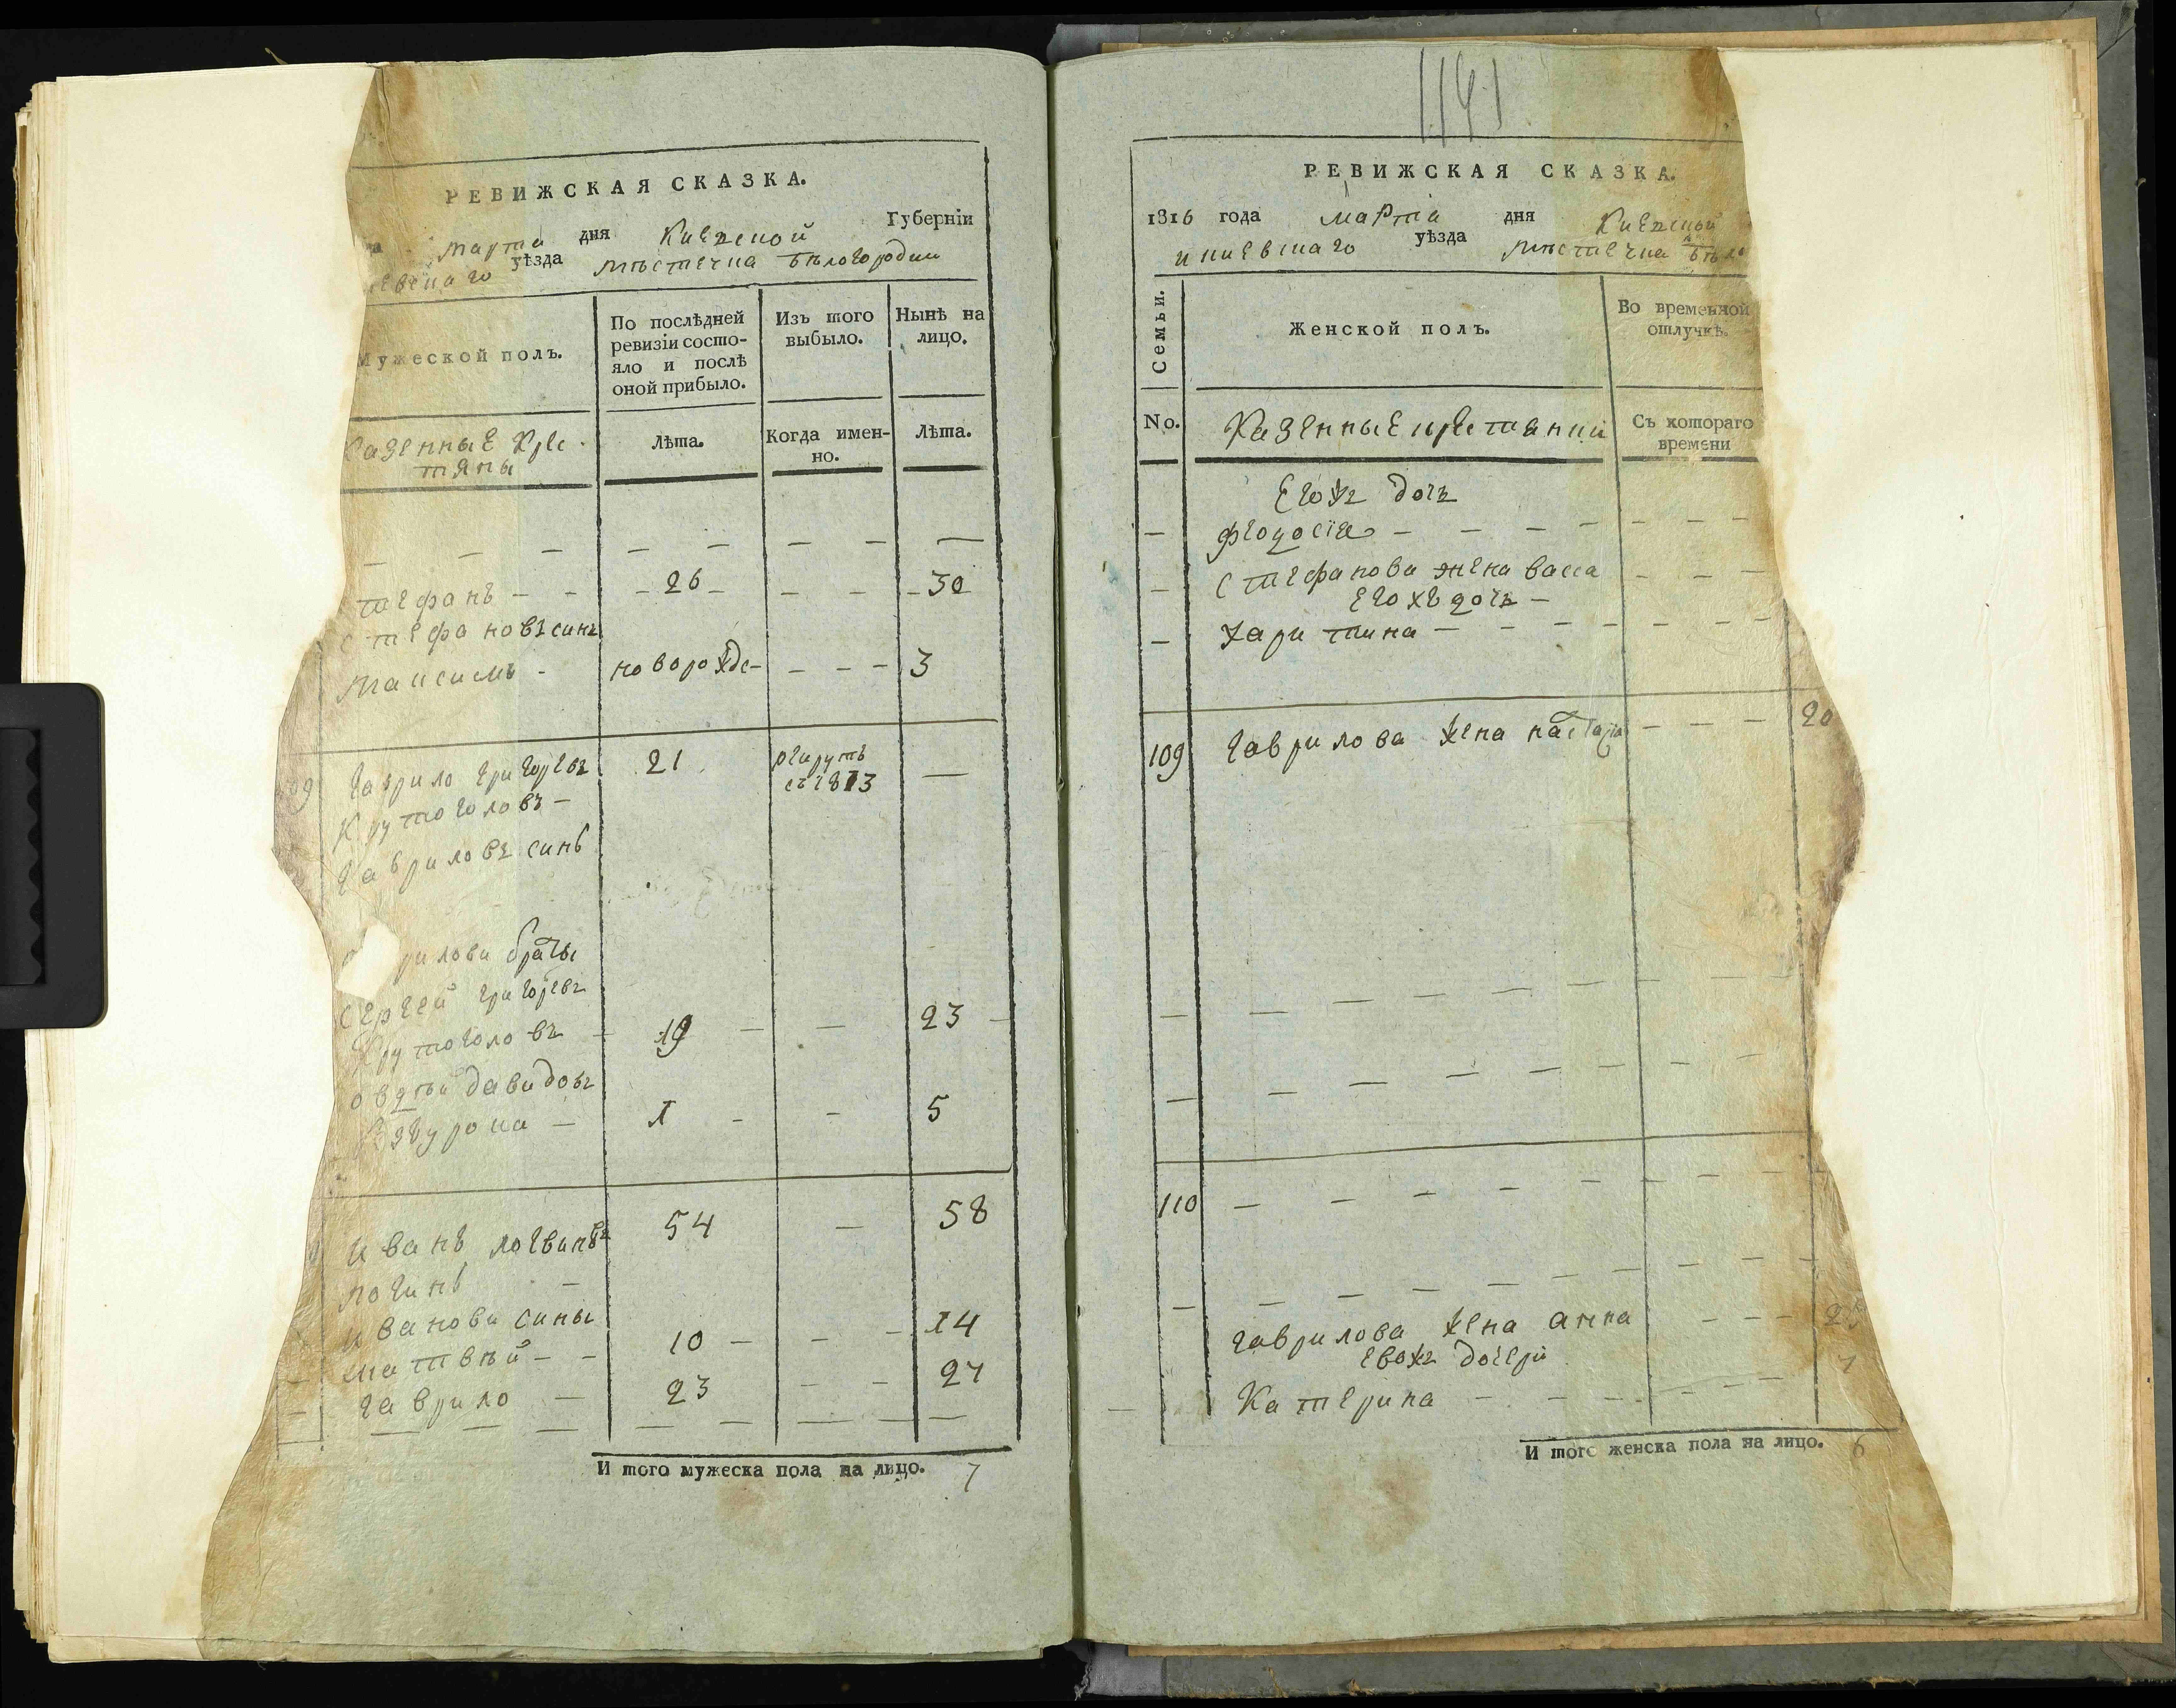 РЕВИЖСКАЯ СКАЗКА.
марта дня Киевской Губерніи
уѣзда мѣстечка Бѣлогородки
Мужеской полъ.
По послѣдней
ревизіи состо-
яло и послѣ
оной прибыло.
Изъ того
выбыло.
Нынѣ на
лицо.
Казенные Кре-
стяны
Лѣта.
Когда имен-
но.
Лѣта.
— — — — — — — —
стефанъ - - - 26 - - - - 30
стефановъ синъ
максимъ - новорожде- - - - 3
109 гаврило григорьевъ 21 рекрутъ —
съ 1813
крутоголовъ -
гавриловъ синъ
рилови браты
сергей григорьевъ
крутоголовъ - 19 - - 23 -
овдѣй давидовъ
- 1 - - 5
иванъ логвиновъ 54 - 58
логинъ -
иванови сины
матвѣй - - 10 - - - 14
гаврило - 23 - - 27
И того мужеска пола на лицо. 7
1141
РЕВИЖСКАЯ СКАЗКА.
1816 года марта дня Киевской
уѣзда мѣстечка Бѣло
Семьи.
Женской полъ.
Во временной
отлучкѣ.
No.
Казенные крестянки
Съ котораго
времени
Егожъ дочъ
— феодосія - - - - - - -
— стефанова жена васса - - -
Егожъ дочъ -
— харитина - - - - - - - -
109 гаврилова жена настасія - - - 20
110 — — — — — — — —
гаврилова жена анна - - - 25
евожъ дочери
— Катерина - - - - - 7
И того женска пола на лицо. 6